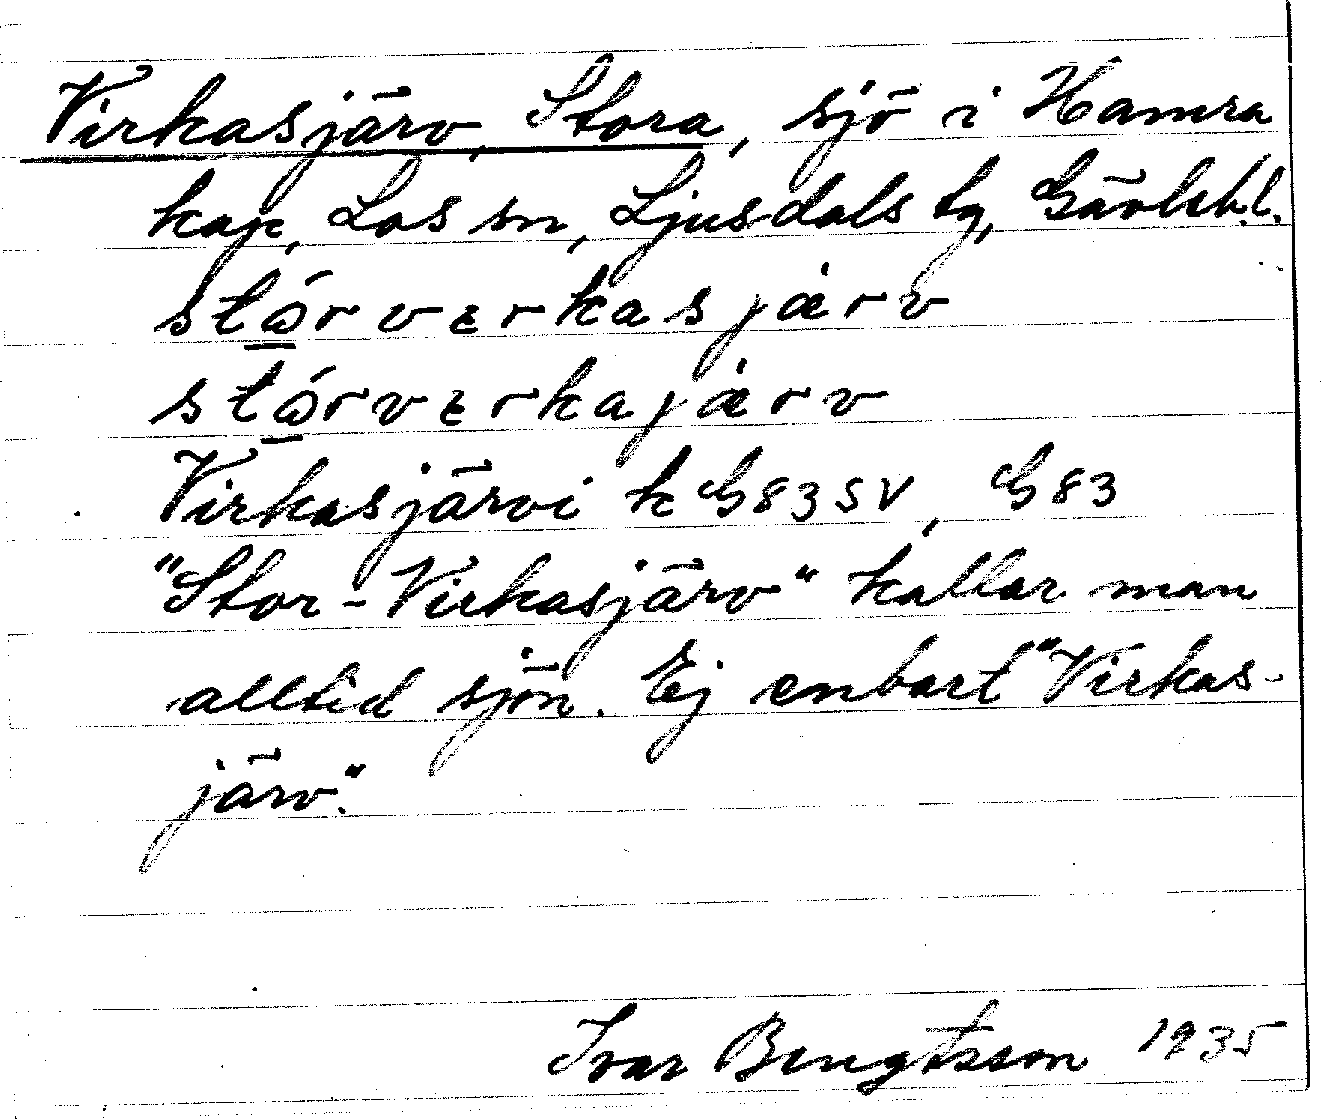 Virkasjärv, Stora, sjö i Hamra
kap, Los sn, Ljusdals tg, Gävleb.l.
stɷ́rvɛrkasjàrv
stɷ́rvɛrkajàrv
Virkasjärvi k G83SV, G83
"Stor-Virkasjärv" kallar man
alltid sjön. Ej enbart "Virkas-
järv".
Ivar Bengtsson 1935